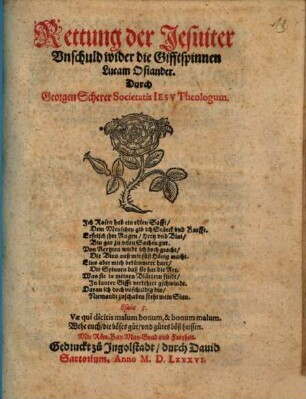 Rettung der Jesuiter
Vnschuld wider die Gifftspinnen
Lucam Osiander.
Durch
Georgen Scherer Societatis IESV Theologum.
Ich Rosen hab ein edlen Safft/
Dem Menschen gib ich Stärck vnd Krafft.
Erfrisch jhm Augen/ Hertz vnd Blut/
Bin gar zu vilen Sachen gut.
Von Keynem würdt ich doch geacht/
Die Binn auß mir süß Hönig macht.
Eins aber mich bekümmert hart/
Die Spinnen daß sie hat die Art/
Wan sie in meinen Blättern sindt/
In lauter Gifft verkehrt gschwindt.
Daran ich doch vnschuldig bin/
Niemandt zuschaden steht mein Sinn.
Esaiæ 5.
Væ qui dicitis malum bonum, & bonum malum.
Wehe euch/ die böses gut/ vnd gutes böß heissen.
Mit Röm. Kay. May. Gnad vnd Freyheit.
Gedruckt zů Ingolstadt/ durch Dauid
Sartorium, Anno M. D. LXXXVI.